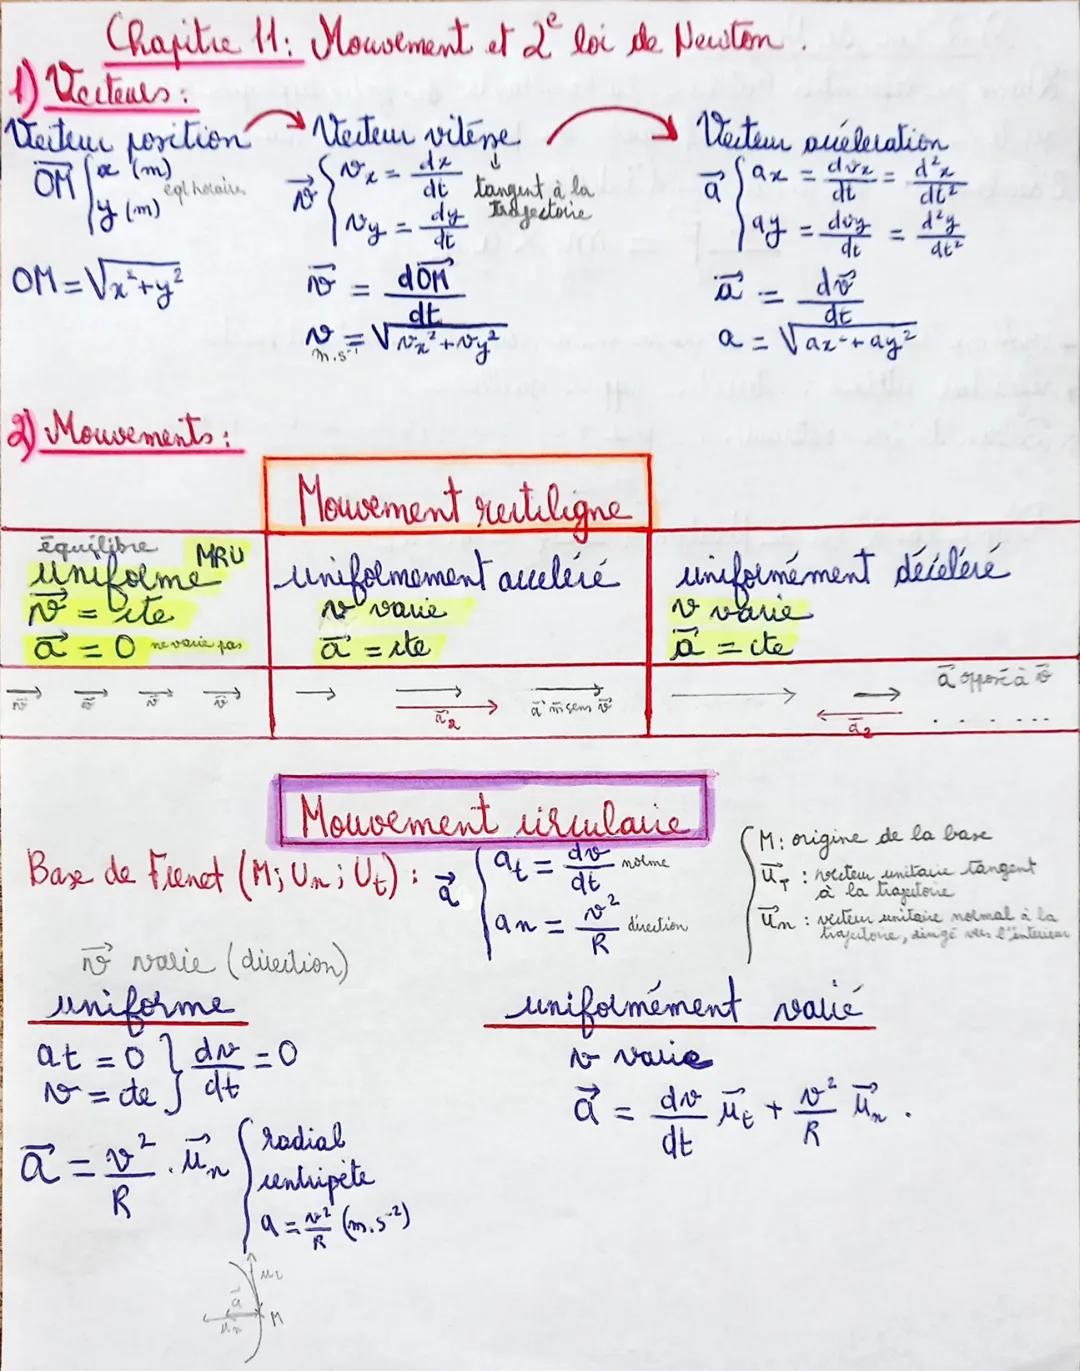 Chapitre 11: Mouvement et 2e loi de Newton.
1) Vecteurs:
Vecteur position → Vecteur vitesse → Vecteur accéleration
OM { x (m) y (m) eq horaires
v { vx = dx/dt vy = dy/dt tangent à la trajectoire
a { ax = dvx/dt = d²x/dt² ay = dvy/dt = d²y/dt²
OM = √x²+y²
v = dOM/dt
a = dv/dt
v = √vx²+vy²
m.s⁻¹
a = √ax²+ay²
2) Mouvements:
Mouvement rectiligne
équilibre
uniforme MRU
v = cte
a = 0 ne varie pas
uniformement accéléré
v varie
a = cte
uniformément décéléré
v varie
a = cte
v v v v
a2 a m sens v
a opposé à v
a2 . . . . . .
Mouvement circulaire
Base de Frenet (M; Un; Ut): a { at = dv/dt norme
an = v²/R direction
M: origine de la base
uT : vecteur unitaire tangent
à la trajectoire
un : vecteur unitaire normal à la
trajectoire, dirigé vers l'intérieur
v varie (direction)
uniforme
at = 0 } dv/dt = 0
v = cte
a = v²/R . un { radial
centripète
a = v²/R (m.s⁻²)
a M
un
uniformément varié
v varie
a = dv/dt ut + v²/R un .